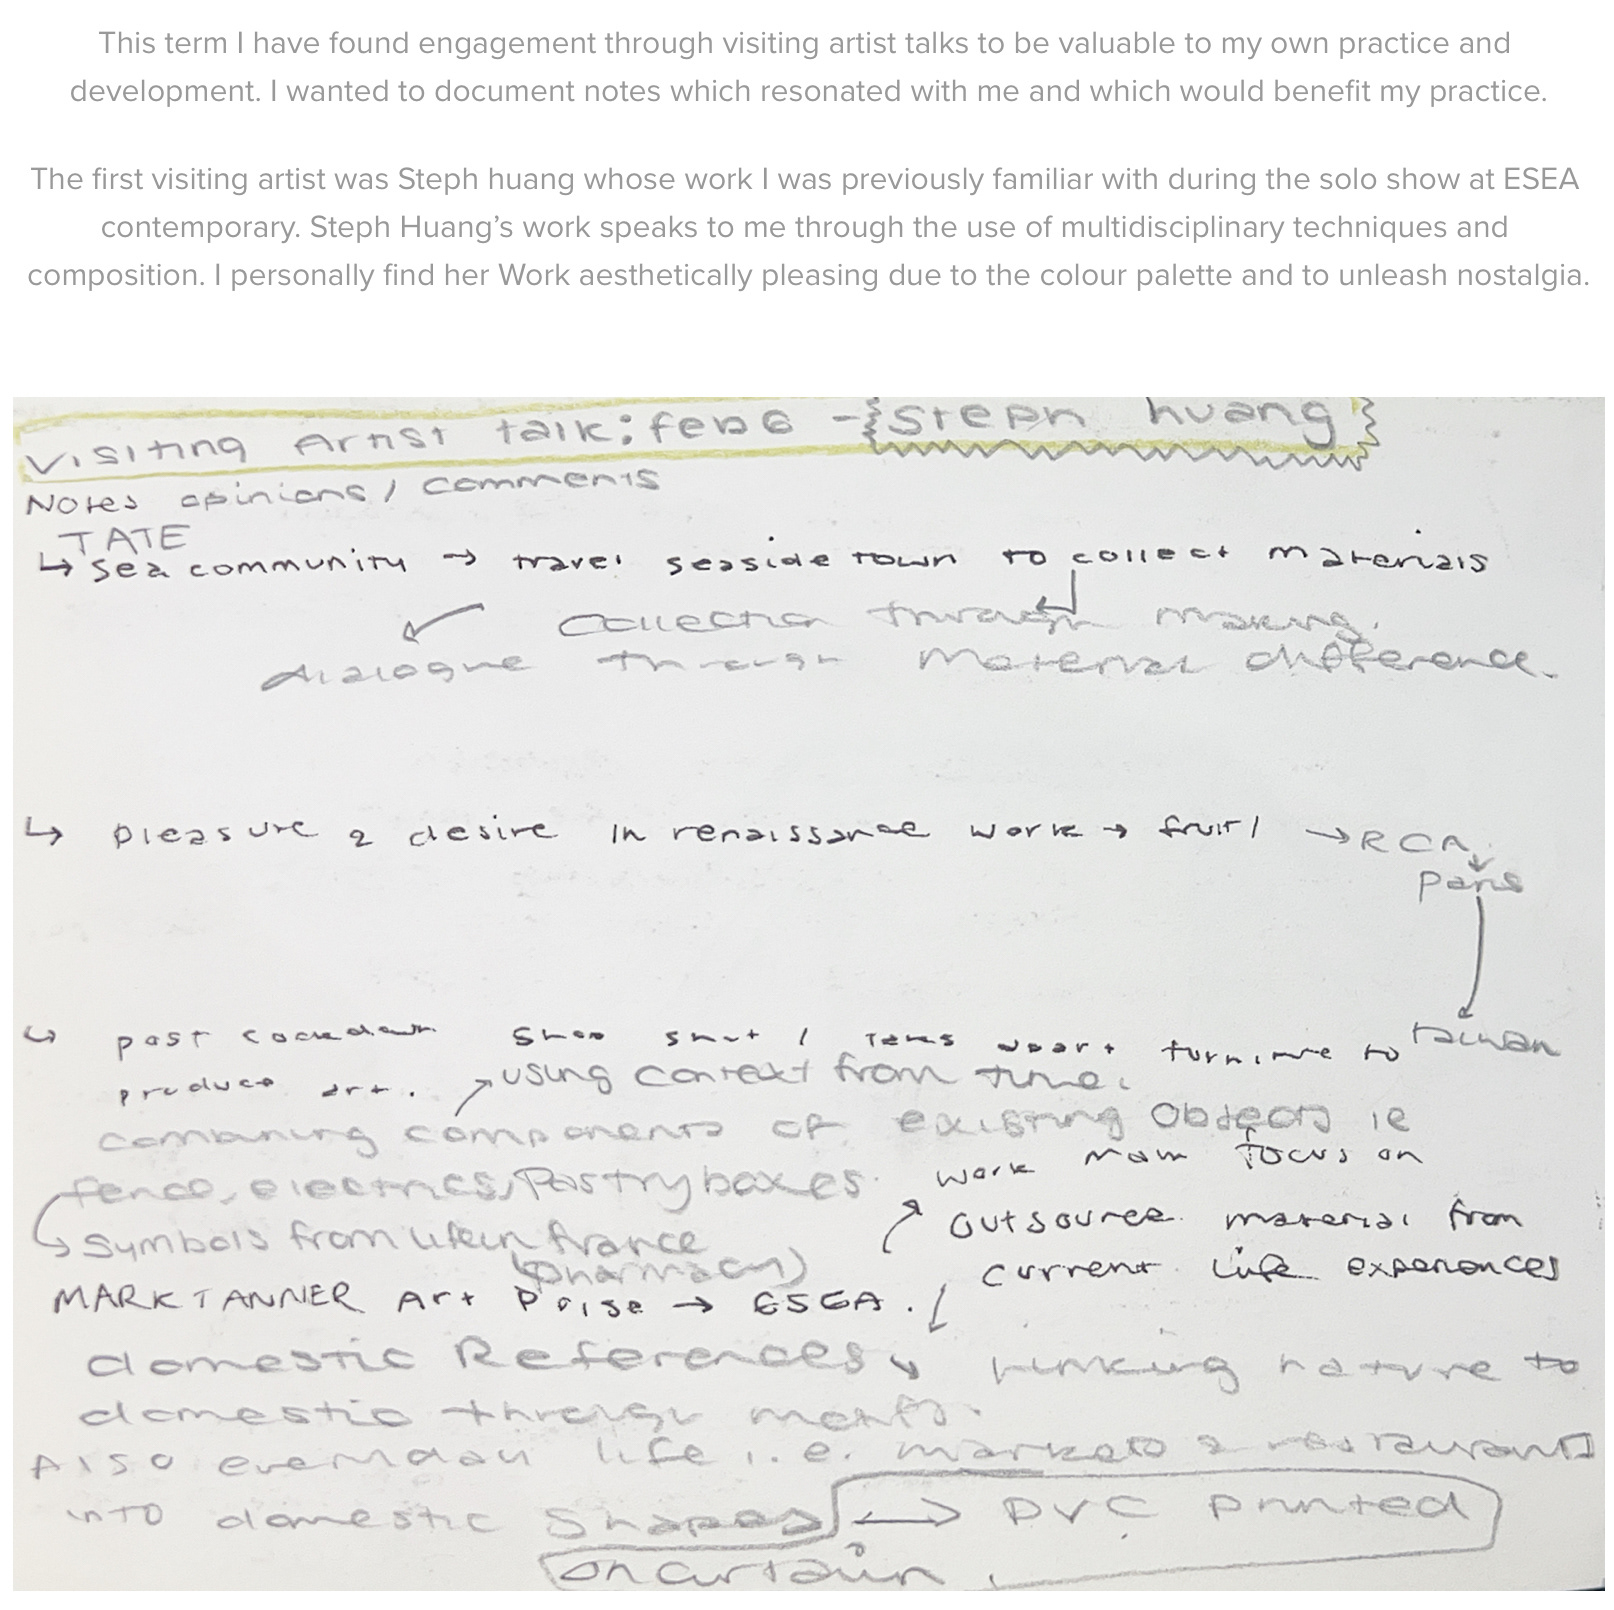 This term I have found engagement through visiting artist talks to be valuable to my own practice and
development. I wanted to document notes which resonated with me and which would benefit my practice.
The first visiting artist was Steph huang whose work I was previously familiar with during the solo show at ESEA
contemporary. Steph Huang's work speaks to me through the use of multidisciplinary techniques and
composition. I personally find her Work aesthetically pleasing due to the colour palette and to unleash nostalgia.
Visiting Artist talk: feb 6 - {Steph huang}
Notes opinions / comments
TATE
↳ Sea community → travel seaside town to collect materials
Collection through making.
dialogue through material difference.
↳ pleasure & desire in renaissance work → fruit / → RCA
Paris
↳ post lockdown shop shut / turniture to Taiwan
produce art. ↗ using context from time.
combining components of existing objects ie
fence, electrics, Pastry boxes.
work main focus on
outsource material from
current life experiences
↳ Symbols from life in france
(pharmacy)
MARK TANNER Art Prise → ESEA.
domestic References ↘ linking nature to
domestic through motifs.
Also everyday life i.e. markets & restaurants
into domestic Shapes ↔ PVC printed
on curtain.